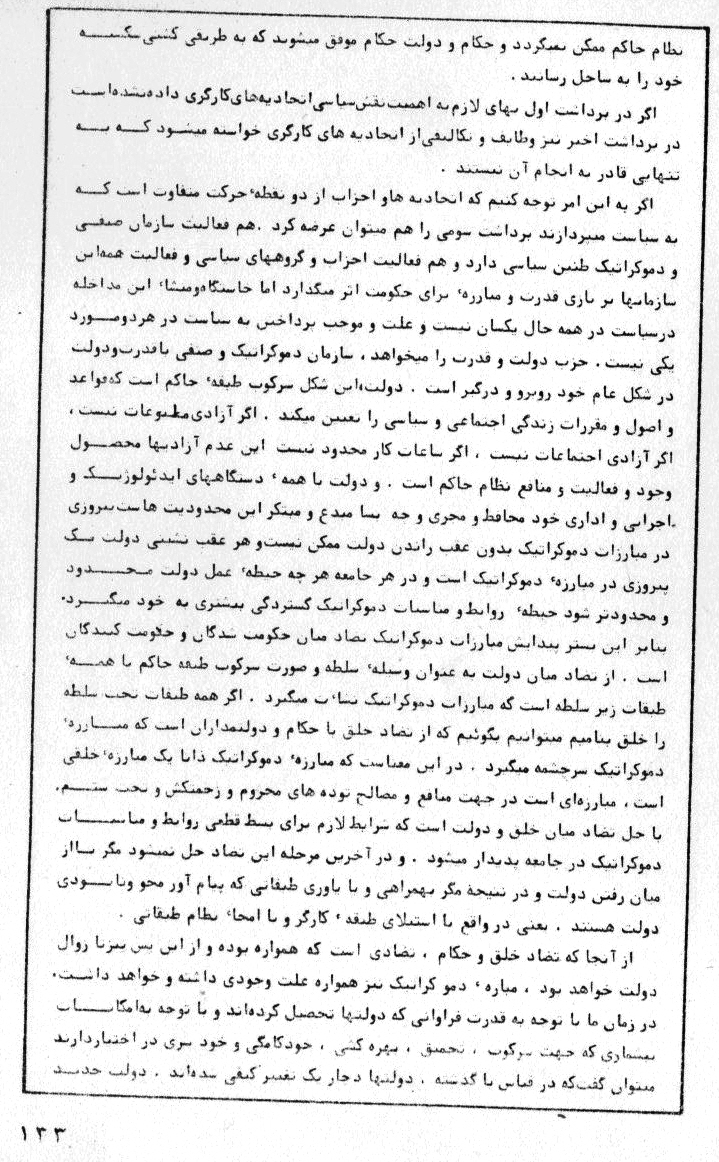 نظام حاکم ممکن نمیگردد و حکام و دولت حکام موفق میشوند که به طریقی کشتی سکیـــه
خود را به ساحل رسانند .
اگر در برداشت اول بهای لازم به اهمیت نقش سیاسی اتحادیه‌های کارگری داده نشده‌اسـت
در برداشت اخیر نیز وظایف و تکالیفی از اتحادیه های کارگری خواسته میشود کـــه بـــه
تنهایی قادر به انجام آن نیستند .
اگر به این امر توجه کنیم که اتحادیه هاو احزاب از دو نقطهٔ حرکت متفاوت است کـــه
به سیاست میپردازند برداشت سومی را هم میتوان عرضه کرد . هم فعالیت سازمان صنفـی
و دموکراتیک طنین سیاسی دارد و هم فعالیت احزاب و گروههای سیاسی و فعالیت همه‌این
سازمانها بر بازی قدرت و مبارزهٔ برای حکومت اثر میگذارد اما خاستگاه‌ومنشاء این مداخله
درسیاست در همه حال یکسان نیست و علت و موجب پرداختن به سیاست در هردومـــورد
یکی نیست . حزب دولت و قدرت را میخواهد ، سازمان دموکراتیک و صنفی باقدرت‌ودولت
در شکل عام خود روبرو و درگیر است . دولت،این شکل سرکوب طبقهٔ حاکم است که‌قواعد
و اصول و مقررات زندگی اجتماعی و سیاسی را تعیین میکند . اگر آزادی‌مطبوعات نیست ،
اگر آزادی اجتماعات نیست ، اگر ساعات کار محدود نیست این عدم آزادیها محصـــول
وجود و فعالیت و منافع نظام حاکم است . و دولت با همهٔ دستگاههای ایدئولوژیـــک و
اجرایی و اداری خود محافظ و مجری و چه بسا مبدع و مبتکر این محدودیت هاست‌پیروزی
در مبارزات دموکراتیک بدون عقب راندن دولت ممکن نیست‌و هر عقب نشینی دولت یـــک
پیروزی در مبارزهٔ دموکراتیک است و در هر جامعه هر چه حیطهٔ عمل دولت محـــدود
و محدودتر شود حیطهٔ روابط‌و مناسبات دموکراتیک گستردگی بیشتری به خود میگیـــرد.
بنابر این بستر پیدایش مبارزات دموکراتیک تضاد میان حکومت شدگان و حکومت کنندگان
است . از تضاد میان دولت به عنوان وسیلهٔ سلطه و صورت سرکوب طبقه حاکم با همـــهٔ
طبقات زیر سلطه است که مبارزات دموکراتیک نشاءت میگیرد . اگر همه طبقات تحت سلطه
را خلق بنامیم میتوانیم بگوئیم که از تضاد خلق با حکام و دولتمداران است که مبـــارزهٔ
دموکراتیک سرچشمه میگیرد . در این معناست که مبارزهٔ دموکراتیک ذاتا یک مبارزهٔ خلقی
است ، مبارزه‌ای است در جهت منافع و مصالح توده های محروم و زحمتکش و تحت ستـــم.
با حل تضاد میان خلق و دولت است که شرایط لازم برای بسط قطعی روابط و مناسبـــات
دموکراتیک در جامعه پدیدار میشود . و در آخرین مرحله این تضاد حل نمیشود مگر بـــا‌از
میان رفتن دولت و در نتیجهٔ مگر بهمراهی و با یاوری طبقاتی که پیام آور محو ونابـــودی
دولت هستند . یعنی در واقع با استیلای طبقهٔ کارگر و با امحاء نظام طبقاتی .
از آنجا که تضاد خلق و حکام ، تضادی است که همواره بوده و از این پس نیزتا زوال
دولت خواهد بود ، مبارهٔ دمو کراتیک نیز همواره علت وجودی داشته و خواهد داشـت.
در زمان ما با توجه به قدرت فراوانی که دولتها تحصیل کرده‌اند و با توجه به‌امکانـــات
بیشماری که جهت سرکوب ، تحمیق ، بهره کشی ، خودکامگی و خود سری در اختیاردارند
میتوان گفت‌که در قیاس با گذشته ، دولتها دچار یک تغییر کیفی شده‌اند . دولت جدیـــد
۱۳۳